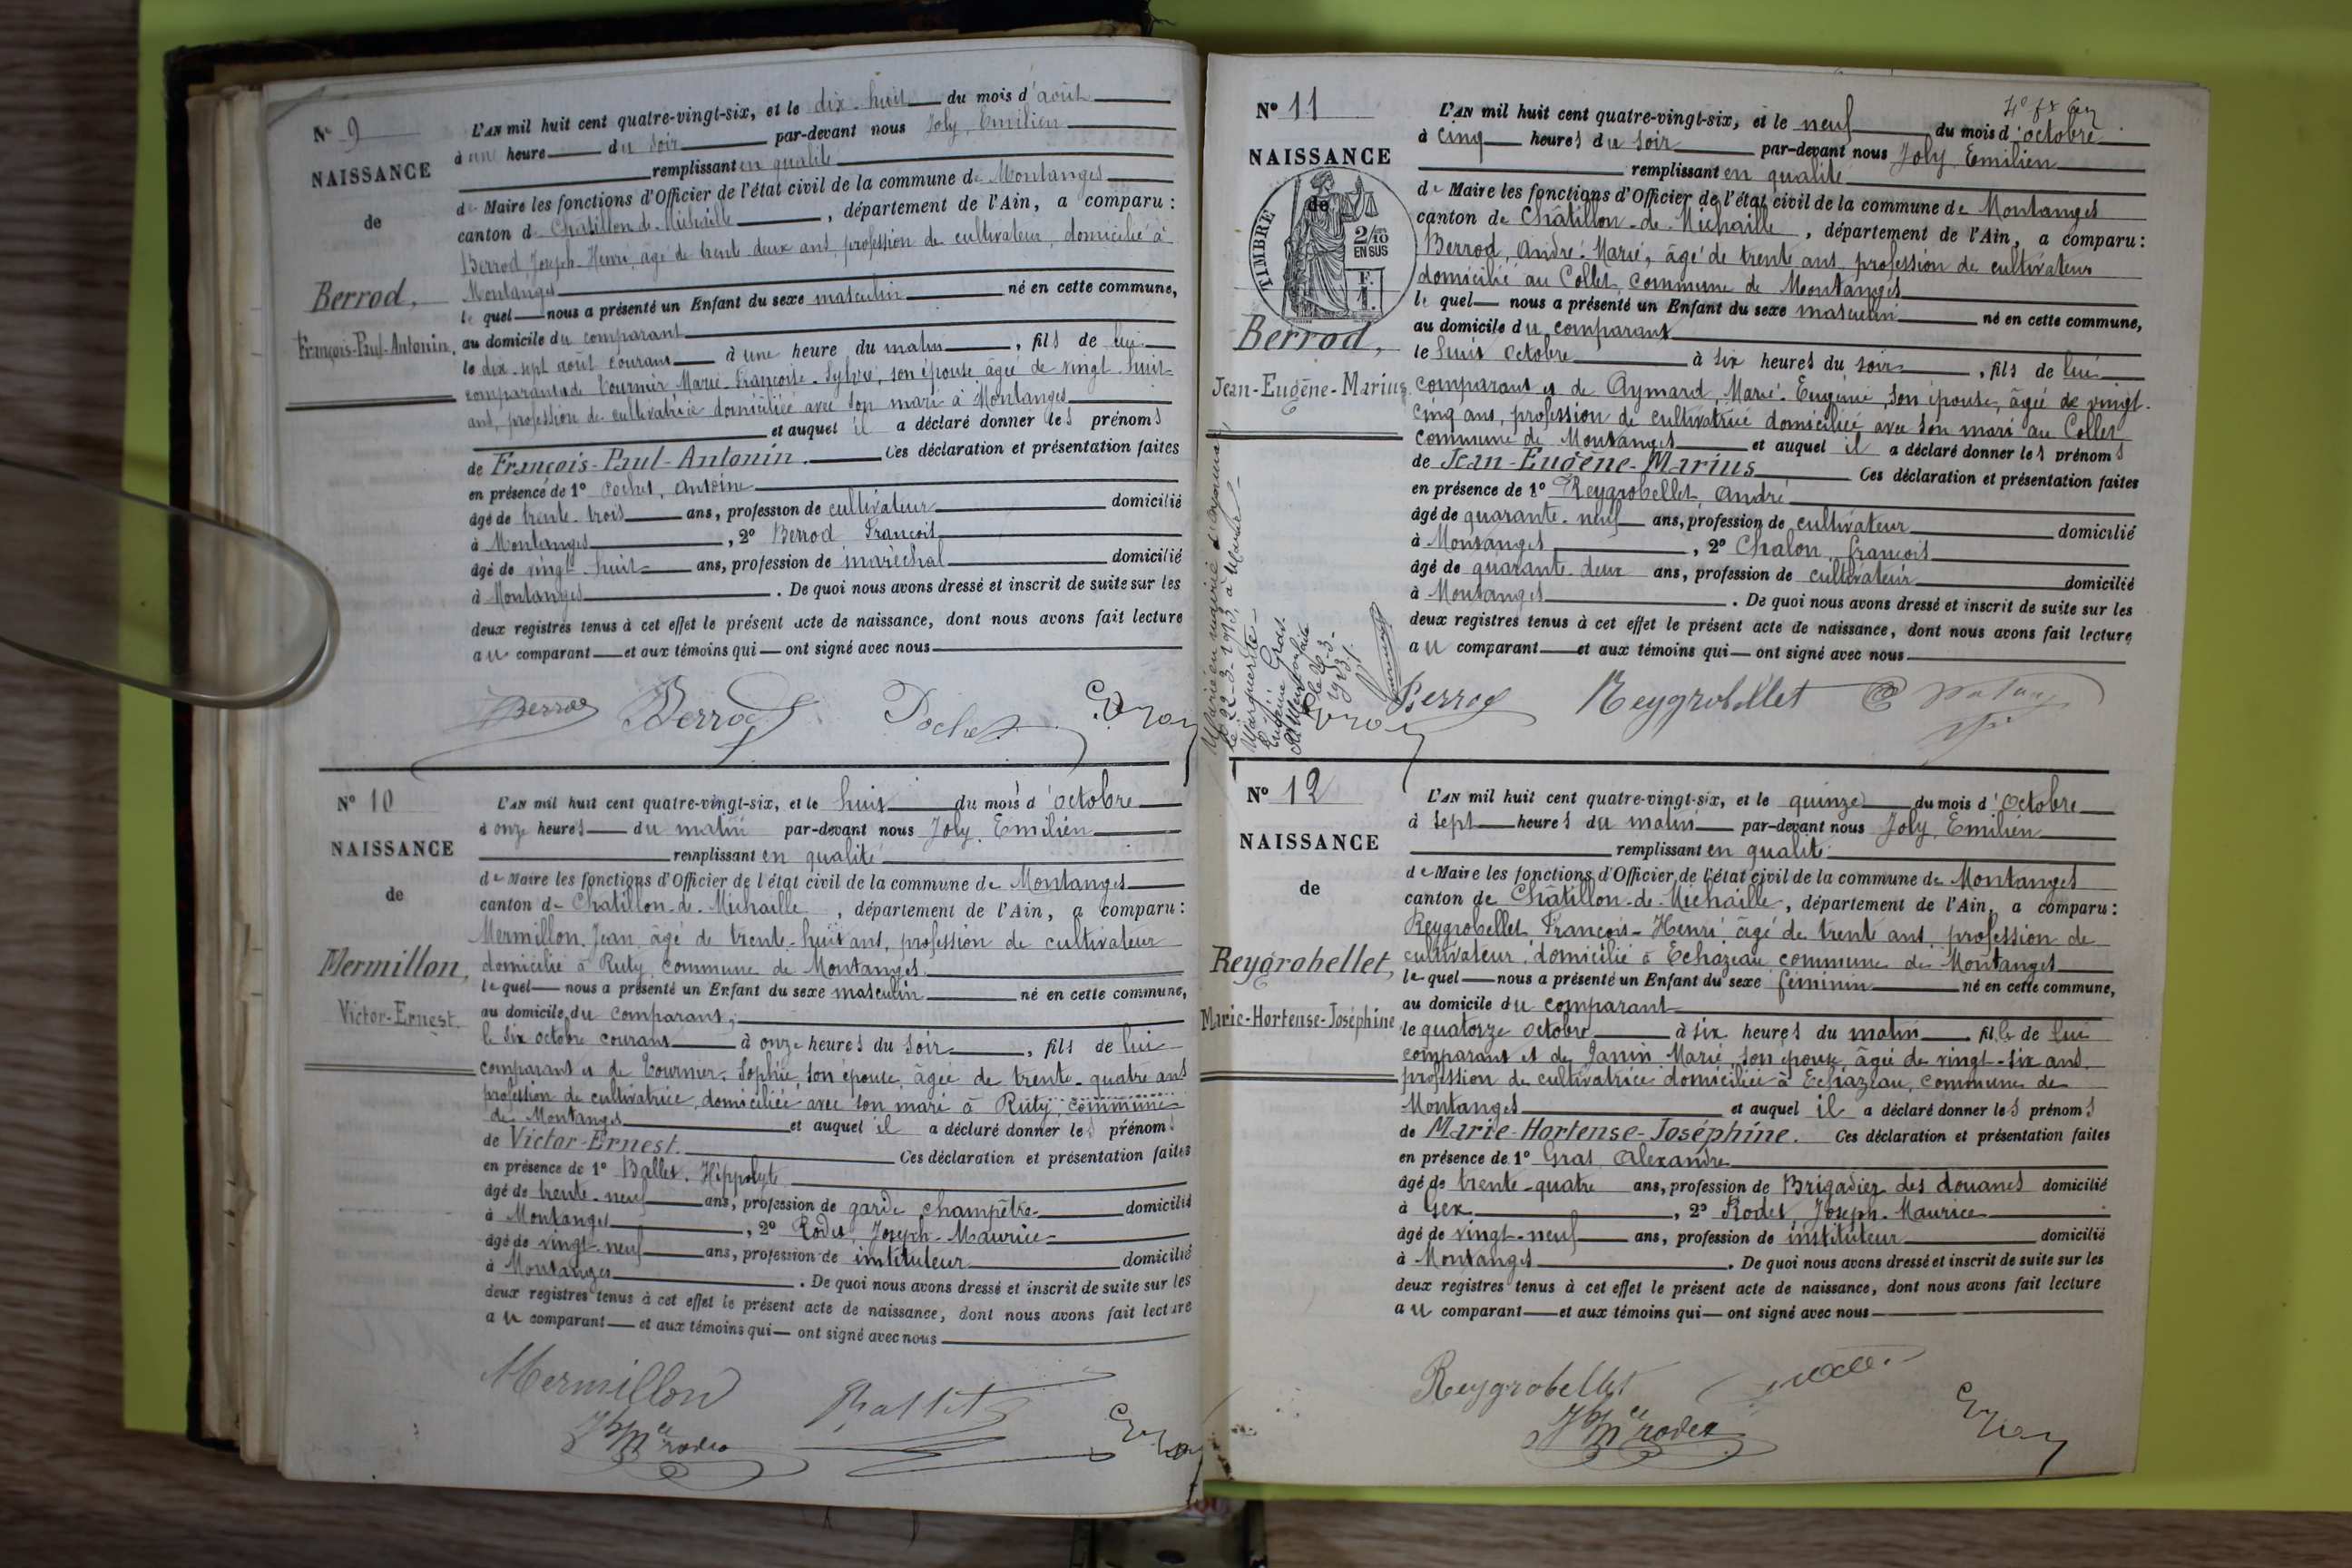 Nº 9
NAISSANCE
de
Berrod,
François-Paul-Antonin.
L'AN mil huit cent quatre-vingt-six, et le dix-huit du mois d'août
à une heure du soir par-devant nous Joly, Emilien
remplissant en qualité
de Maire les fonctions d'Officier de l'état civil de la commune de Montanges
canton de Châtillon-de-Michaille, département de l'Ain, a comparu :
Berrod, Joseph-Henri, âgé de trente deux ans, profession de cultivateur, domicilié à
Montanges
le quel nous a présenté un Enfant du sexe masculin né en cette commune,
au domicile du comparant
le dix-sept août courant à une heure du matin, fils de lui
comparant et de Tournier Marie-Françoise-Sylvie, son épouse âgée de vingt-huit
ans, profession de cultivatrice domiciliée avec son mari à Montanges
et auquel il a déclaré donner les prénoms
de François-Paul-Antonin. Ces déclaration et présentation faites
en présence de 1º Pochet, Antoine
âgé de trente-trois ans, profession de cultivateur domicilié
à Montanges, 2º Berrod François
âgé de vingt-huit ans, profession de maréchal domicilié
à Montanges. De quoi nous avons dressé et inscrit de suite sur les
deux registres tenus à cet effet le présent acte de naissance, dont nous avons fait lecture
au comparant et aux témoins qui ont signé avec nous
Berrod Berrod Pochet
Nº 10
NAISSANCE
de
Mermillon,
Victor-Ernest.
L'AN mil huit cent quatre-vingt-six, et le huit du mois d'octobre
à onze heures du matin par-devant nous Joly, Emilien
remplissant en qualité
de Maire les fonctions d'Officier de l'état civil de la commune de Montanges
canton de Châtillon-de-Michaille, département de l'Ain, a comparu :
Mermillon, Jean, âgé de trente-huit ans, profession de cultivateur
domicilié à Ruty, commune de Montanges
le quel nous a présenté un Enfant du sexe masculin né en cette commune,
au domicile du comparant,
le six octobre courant à onze heures du soir, fils de lui
comparant et de Tournier, Sophie, son épouse, âgée de trente-quatre ans
profession de cultivatrice, domiciliée avec son mari à Ruty, commune
de Montanges et auquel il a déclaré donner les prénoms
de Victor-Ernest. Ces déclaration et présentation faites
en présence de 1º Ballet, Hippolyte
âgé de trente-neuf ans, profession de garde champêtre domicilié
à Montanges, 2º Rodet, Joseph-Maurice
âgé de vingt-neuf ans, profession de intituteur domicilié
à Montanges. De quoi nous avons dressé et inscrit de suite sur les
deux registres tenus à cet effet le présent acte de naissance, dont nous avons fait lecture
au comparant et aux témoins qui ont signé avec nous
Mermillon Ballet
Jph Mce rodet
Nº 11
NAISSANCE
de
TIMBRE
2/10
EN SUS
F.
1
Berrod,
Jean-Eugène-Marius.
L'AN mil huit cent quatre-vingt-six, et le neuf du mois d'octobre
à cinq heures du soir par-devant nous Joly, Emilien
remplissant en qualité
de Maire les fonctions d'Officier de l'état civil de la commune de Montanges
canton de Châtillon-de-Michaille, département de l'Ain, a comparu :
Berrod, André-Marie, âgé de trente ans, profession de cultivateur
domicilié au Collet, commune de Montanges
le quel nous a présenté un Enfant du sexe masculin né en cette commune,
au domicile du comparant
le huit octobre à six heures du soir, fils de lui
comparant et de Aymard, Marie-Eugénie, son épouse, âgée de vingt-
cinq ans, profession de cultivatrice domiciliée avec son mari au Collet
commune de Montanges et auquel il a déclaré donner les prénoms
de Jean-Eugène-Marius Ces déclaration et présentation faites
en présence de 1º Reygrobellet, André
âgé de quarante-neuf ans, profession de cultivateur domicilié
à Montanges, 2º Chalon, françois
âgé de quarante-deux ans, profession de cultivateur domicilié
à Montanges. De quoi nous avons dressé et inscrit de suite sur les
deux registres tenus à cet effet le présent acte de naissance, dont nous avons fait lecture
au comparant et aux témoins qui ont signé avec nous
Berrod Reygrobellet
Nº 12
NAISSANCE
de
Reygrobellet,
Marie-Hortense-Joséphine
L'AN mil huit cent quatre-vingt-six, et le quinze du mois d'octobre
à sept heures du matin par-devant nous Joly, Emilien
remplissant en qualité
de Maire les fonctions d'Officier de l'état civil de la commune de Montanges
canton de Châtillon-de-Michaille, département de l'Ain, a comparu :
Reygrobellet François-Henri âgé de trente ans, profession de
cultivateur, domicilié à Echazeau commune de Montanges
le quel nous a présenté un Enfant du sexe féminin né en cette commune,
au domicile du comparant
le quatorze octobre à six heures du matin fille de lui
comparant et de Janin Marie, son épouse, âgée de vingt-six ans,
profession de cultivatrice domiciliée à Echazeau, commune de
Montanges et auquel il a déclaré donner les prénoms
de Marie-Hortense-Joséphine. Ces déclaration et présentation faites
en présence de 1º Gras Alexandre
âgé de trente-quatre ans, profession de Brigadier des douanes domicilié
à Gex, 2º Rodet, Joseph-Maurice
âgé de vingt-neuf ans, profession de instituteur domicilié
à Montanges. De quoi nous avons dressé et inscrit de suite sur les
deux registres tenus à cet effet le présent acte de naissance, dont nous avons fait lecture
au comparant et aux témoins qui ont signé avec nous
Reygrobellet
Jph Mce rodet